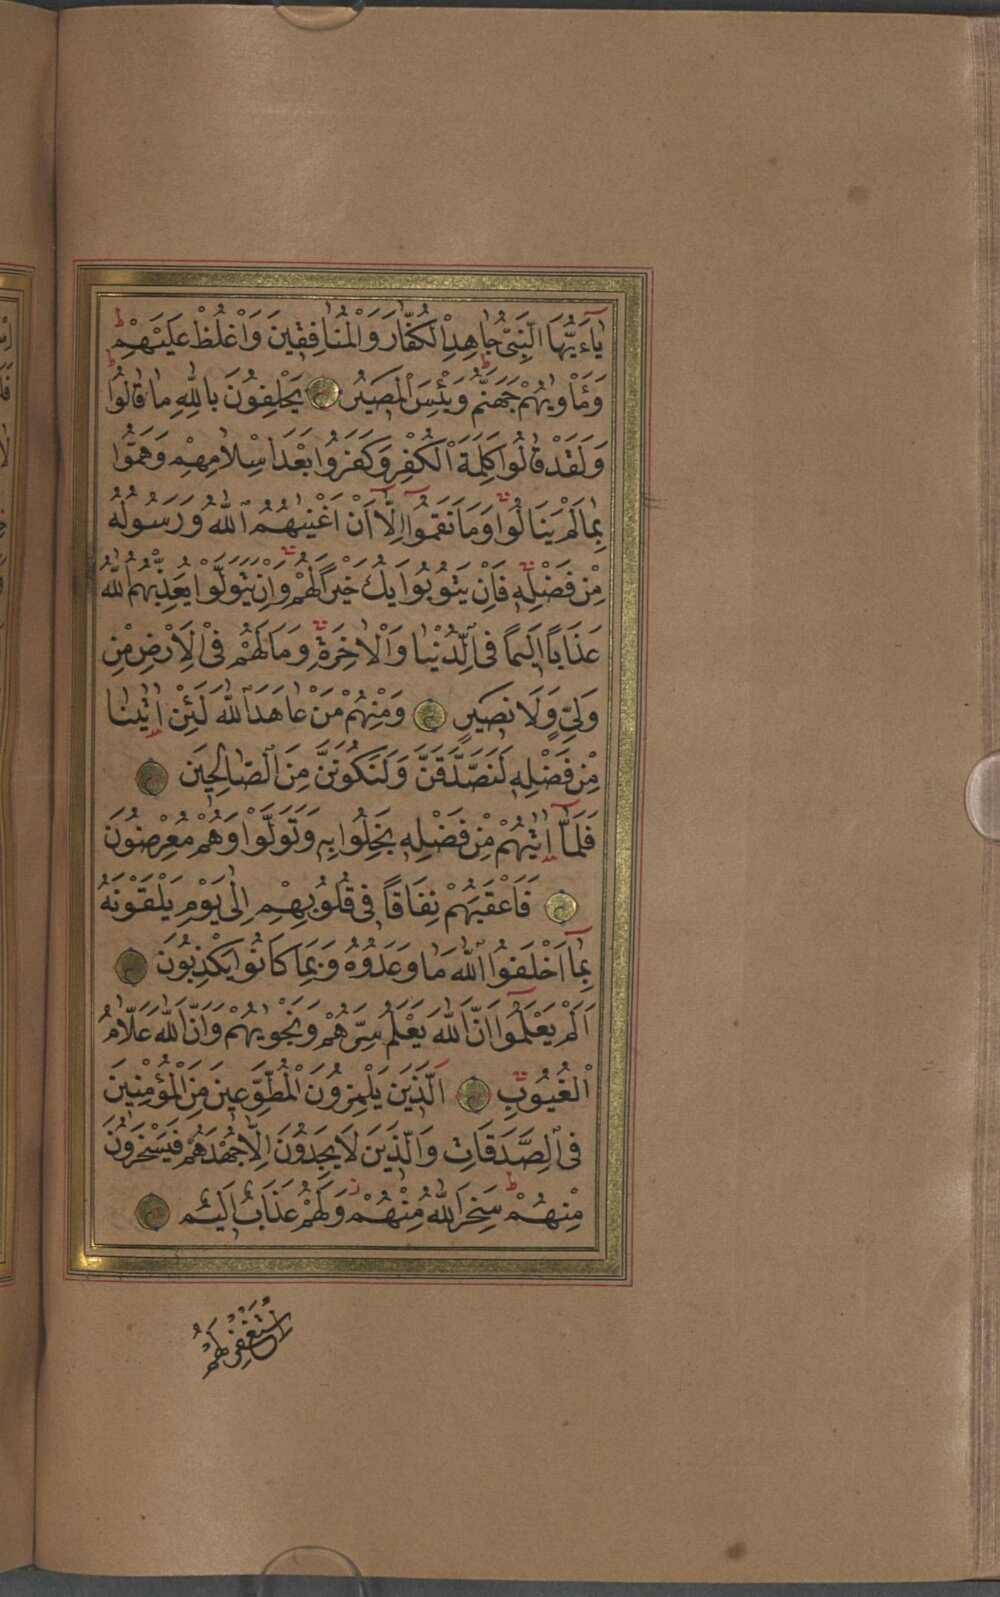 يَٓاءَيُّهَا النَّبِيُّ جَاهِدِ الْكُفَّارَ وَالْمُنَافِقِينَ وَاغْلُظْ عَلَيْهِمْ ط
وَمَأْوٰيهُمْ جَهَنَّمُ ط وَبِئْسَ الْمَصِيرُ يَحْلِفُونَ بِاللّٰهِ مَا قَالُوا ط
وَلَقَدْ قَالُوا كَلِمَةَ الْكُفْرِ وَكَفَرُوا بَعْدَ اِسْلَامِهِمْ وَهَمُّوا
بِمَا لَمْ يَنَالُوا وَمَا نَقَمُٓوا اِلَّٓا اَنْ اَغْنٰيهُمُ اللّٰهُ وَرَسُولُهُ
مِنْ فَضْلِهِ فَاِنْ يَتُوبُوا يَكُ خَيْرًا لَهُمْ وَاِنْ يَتَوَلَّوْا يُعَذِّبْهُمُ اللّٰهُ
عَذَابًا اَلِيمًا فِي الدُّنْيَا وَالْاٰخِرَةِ وَمَا لَهُمْ فِي الْاَرْضِ مِنْ
وَلِيٍّ وَلَا نَصِيرٍ وَمِنْهُمْ مَنْ عَاهَدَ اللّٰهَ لَئِنْ اٰتٰينَا
مِنْ فَضْلِهِ لَنَصَّدَّقَنَّ وَلَنَكُونَنَّ مِنَ الصَّالِحِينَ
فَلَمَّٓا اٰتٰيهُمْ مِنْ فَضْلِهِ بَخِلُوا بِهِ وَتَوَلَّوْا وَهُمْ مُعْرِضُونَ
فَاَعْقَبَهُمْ نِفَاقًا فِي قُلُوبِهِمْ اِلٰى يَوْمِ يَلْقَوْنَهُ
بِمَٓا اَخْلَفُوا اللّٰهَ مَا وَعَدُوهُ وَبِمَا كَانُوا يَكْذِبُونَ
اَلَمْ يَعْلَمُٓوا اَنَّ اللّٰهَ يَعْلَمُ سِرَّهُمْ وَنَجْوٰيهُمْ وَاَنَّ اللّٰهَ عَلَّامُ
الْغُيُوبِ اَلَّذِينَ يَلْمِزُونَ الْمُطَّوِّعِينَ مِنَ الْمُؤْمِنِينَ
فِي الصَّدَقَاتِ وَالَّذِينَ لَا يَجِدُونَ اِلَّا جُهْدَهُمْ فَيَسْخَرُونَ
مِنْهُمْ ط سَخِرَ اللّٰهُ مِنْهُمْ ز وَلَهُمْ عَذَابٌ اَلِيمٌ
اِسْتَغْفِرْ لَهُمْ